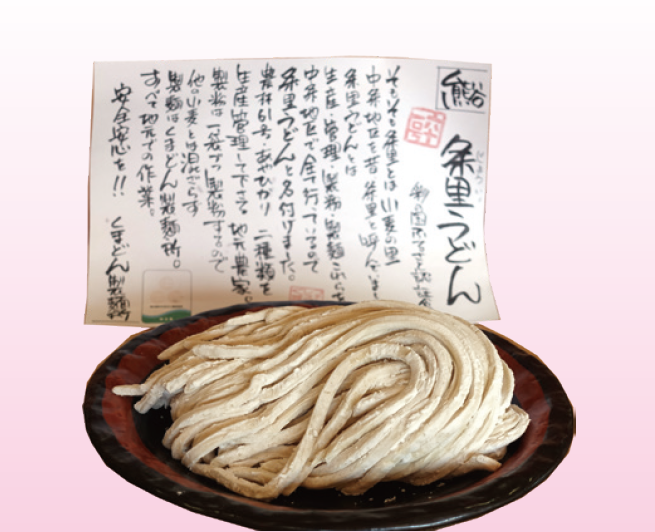 熊谷
条里うどん
そもそも条里とは小麦の里
中条地区を昔 条里と呼んでいまし
条里うどんとは
生産・管理・製粉・製麺これらを
中条地区で全て行っているので
条里うどんと名付けました。
農林61号・あやひかり 二種類を
生産管理して下さる 地元農家。
製粉は一袋づつ製粉するので
他の小麦とは混ざらず
製麺はくまどん製麺所。
すべて地元での作業。
安全安心を!! くまどん製麺所